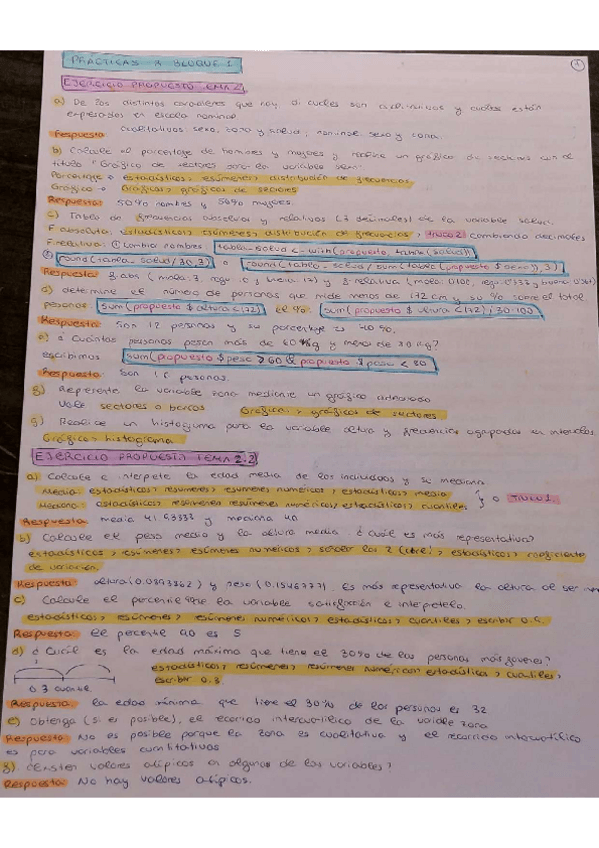 PRÁCTICAS R BLOQUE 1
1
EJERCICIO PROPUESTO TEMA 2.1
a) De los distintos caracteres que hay, di cuales son cualitativos y cuales están
expresados en escala nominal.
Respuesta: Cualitativos: sexo, zona y salud; nominal: sexo y zona.
b) Calcule el porcentaje de hombres y mujeres y realice un gráfico de sectores con el
título "Gráfico de sectores para la variable sexo"
Porcentaje → estadísticos, resúmenes, distribución de frecuencias
Gráfico → Gráficas, gráficos de sectores
Respuesta: 50% hombres y 50% mujeres.
c) Tabla de frecuencias absolutas y relativas (3 decimales) de la variable salud.
F absoluta: estadísticos, resúmenes, distribución de frecuencias, truco 2 cambiando decimales
F relativa: ① Cambia nombres: tabla_salud <- with(propuesto, table(salud))
② round(tabla_salud/30, 3) o round(tabla_salud/sum(table(propuesto$sexo)), 3)
Respuesta: f.abs (mala: 3, regu: y buena: 17) y f.relativa (mala: 0.100, regu: 0.333 y buena: 0.567)
d) determine el número de personas que mide menos de 172 cm y su % sobre el total
personas: sum(propuesto$altura<172) el %: sum(propuesto$altura<172)/30*100
Respuesta: Son 12 personas y su porcentaje es 40%.
e) ¿Cuántas personas pesan más de 60 kg y menos de 80 kg?
escribimos sum(propuesto$peso > 60 & propuesto$peso < 80
Respuesta: Son personas.
f) Represente la variable zona mediante un gráfico adecuado
Vale sectores o barras Gráficas, gráficos de sectores
g) Realice un histograma para la variable altura y frecuencias agrupadas en intervalos
Gráficas, histograma
EJERCICIO PROPUESTO TEMA 2.2
a) Calcule e interprete la edad media de los individuos y su mediana
Media: estadísticos, resúmenes, resúmenes numéricos, estadísticos, media
Mediana: estadísticos, resúmenes, resúmenes numéricos, estadísticos, cuantiles } o TRUCO 1
Respuesta: media 41.53333 y mediana 40
b) Calcule el peso medio y la altura media. ¿Cuál es más representativa?
estadísticos, resúmenes, resúmenes numéricos, los 2 (ctrl), estadísticos, coeficiente
de variación.
Respuesta: altura (0.0393362) y peso (0.1546777). Es más representativa la altura al ser
c) Calcule el percentil 40 de la variable satisfacción e interprételo.
estadísticos, resúmenes, resúmenes numéricos, estadísticos, cuantiles, escribir 0.4.
Respuesta: el percentil 40 es 5
d) ¿Cuál es la edad máxima que tiene el 30% de las personas más jóvenes?
estadísticos, resúmenes, resúmenes numéricos, estadísticos, cuantiles,
escribir 0.3
0.3 cuantil
Respuesta: la edad máxima que tiene el 30% de las personas es 32
e) Obtenga (si es posible), el recorrido intercuartílico de la variable zona
Respuesta: No es posible porque la zona es cualitativa y el recorrido intercuartílico
es para variables cuantitativas
f) ¿Existen valores atípicos en algunas de las variables?
Respuesta: No hay valores atípicos.